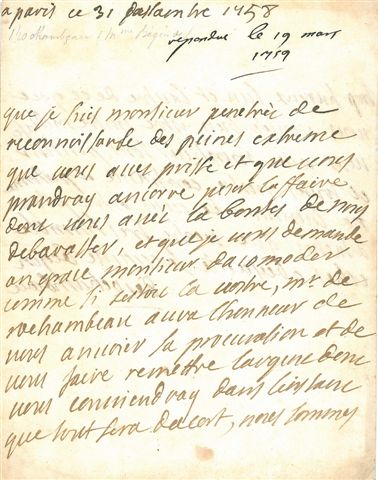 a paris ce 31 dessambre 1758
repondue le 19 mars
1759
que je suis monsieur penetrée de
reconnoissance des peines extreme
que vous aves prisse et que vous
prandray ancorre pour laffaire
donc vous avés la bontes de nous
debarasser, et que je vous demande
an grace monsieur dacomoder
comme si cestoit la vostre, mr de
rochambeau aura lhonneur de
vous anvoier sa procuration et de
vous faire remettre largeant donc
vous conviendray dans linstant
que tout sera dacort, nous sommes